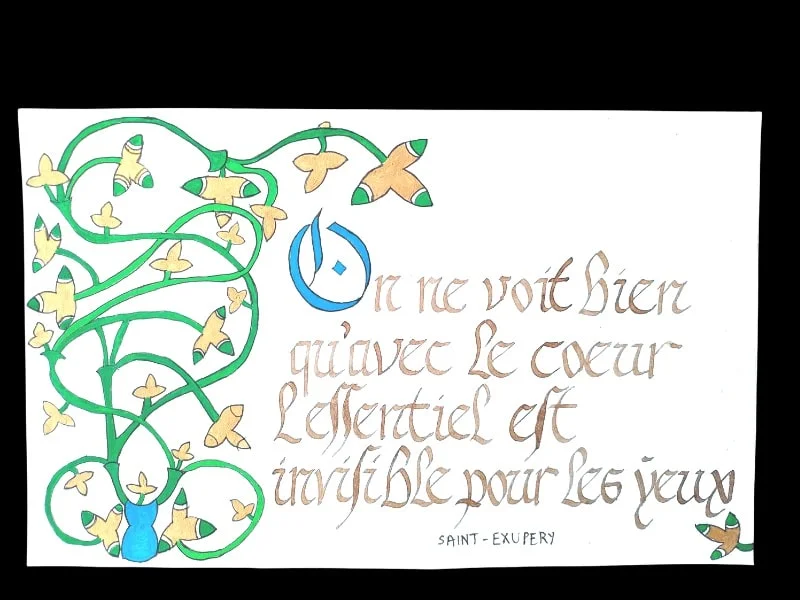 On ne voit bien
qu'avec le coeur
Leſſentiel eſt
inviſible pour les ÿeux
SAINT-EXUPERY